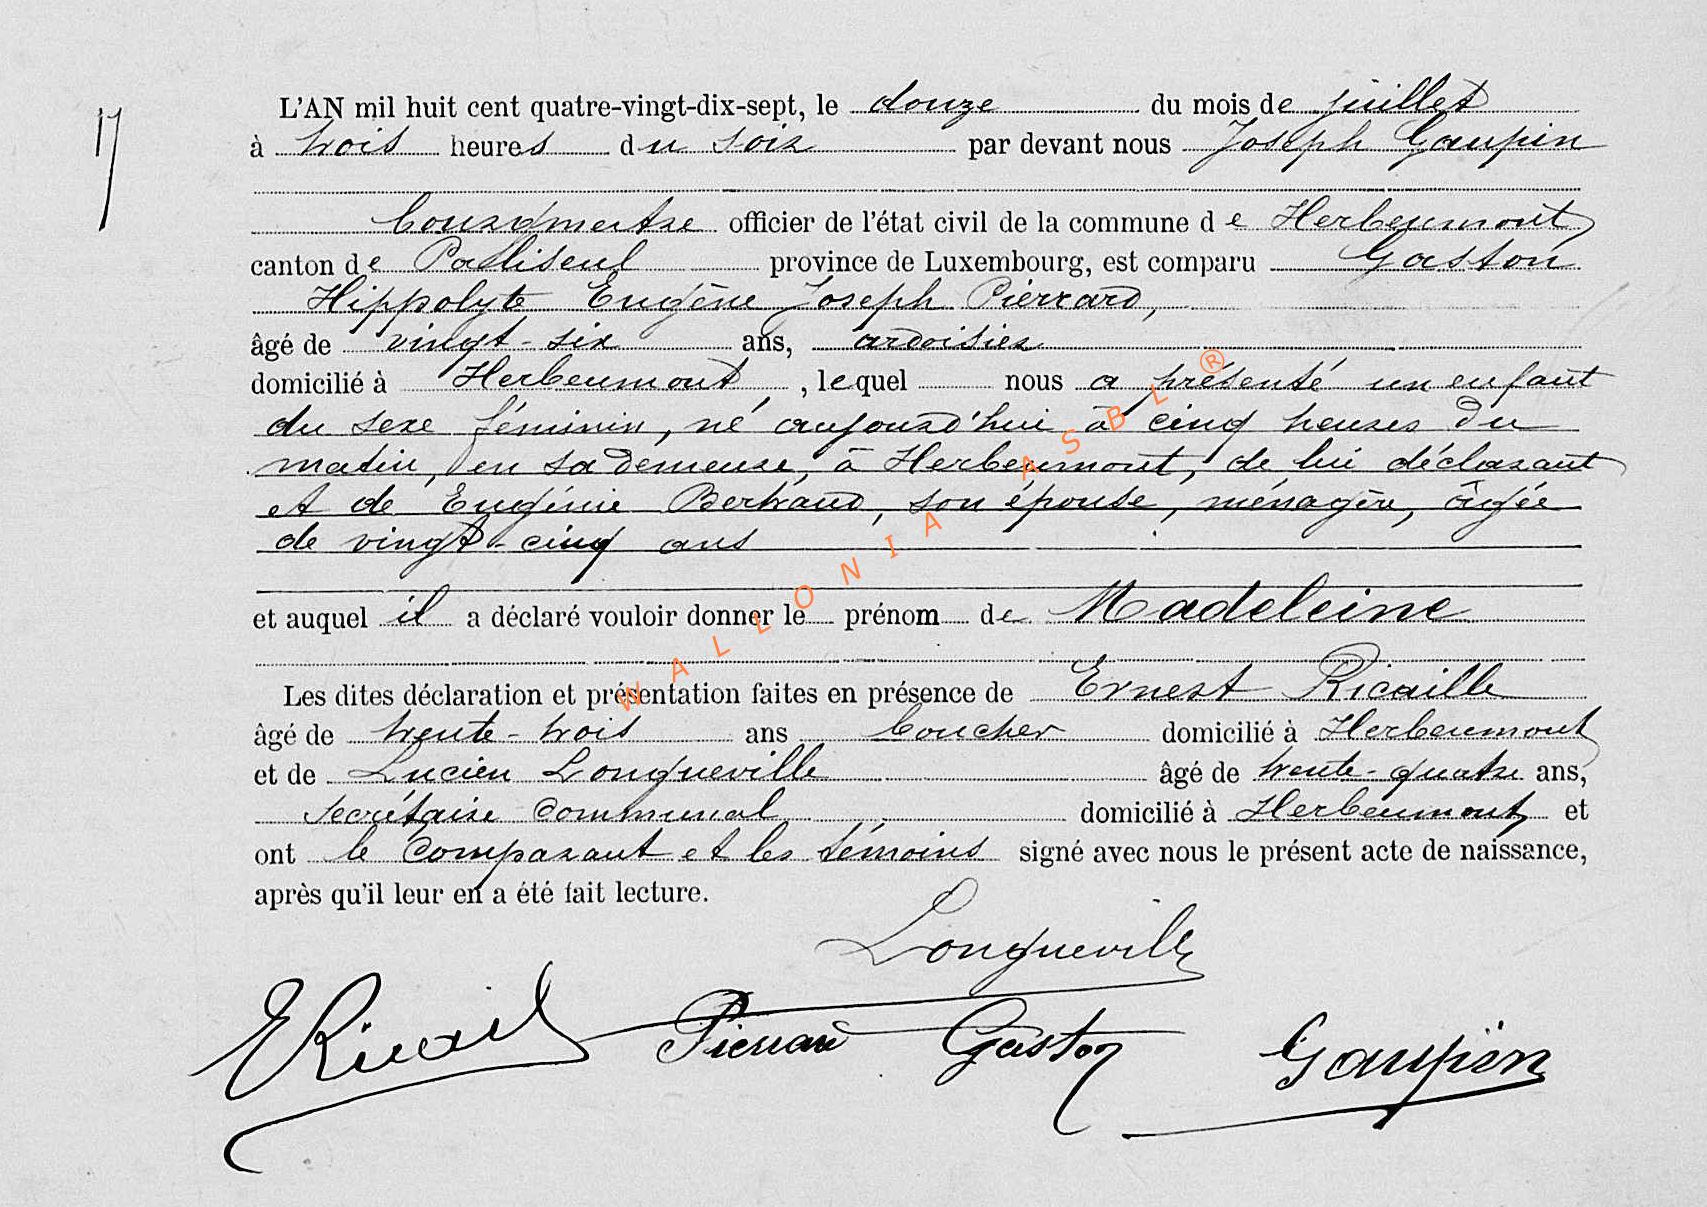 17
L'AN mil huit cent quatre-vingt-dix-sept, le douze du mois de juillet
à trois heures du soir par devant nous Joseph Gaupin
bourgmestre officier de l'état civil de la commune de Herbeumont
canton de Paliseul province de Luxembourg, est comparu Gaston
Hippolyte Eugène Joseph Pierrard,
âgé de vingt-six ans, ardoisier
domicilié à Herbeumont, lequel nous a présenté un enfant
du sexe féminin, né aujourd'hui à cinq heures du
matin, en sa demeure, à Herbeumont, de lui déclarant
et de Eugénie Bertrand, son épouse, ménagère, âgée
de vingt-cinq ans
et auquel il a déclaré vouloir donner le prénom de Madeleine
Les dites déclaration et présentation faites en présence de Ernest Ricaille
âgé de trente-trois ans boucher domicilié à Herbeumont
et de Lucien Longueville âgé de trente-quatre ans,
secrétaire communal domicilié à Herbeumont et
ont le comparant et les témoins signé avec nous le présent acte de naissance,
après qu'il leur en a été fait lecture.
Longueville
E Ricaille Pierrard Gaston Gaupin
WALLONIA ASBL ®